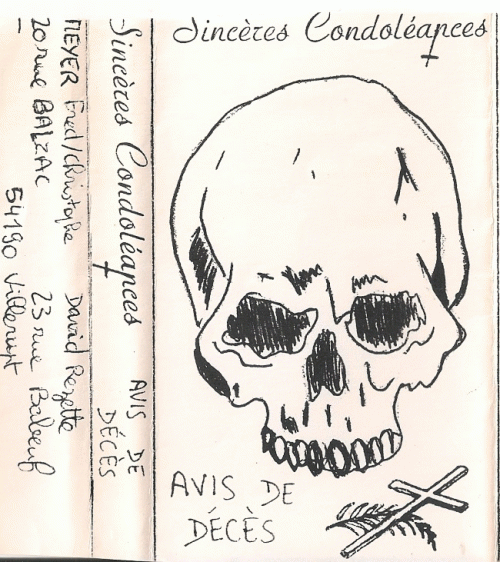 Sincères Condoléances
AVIS DE
DÉCÈS
Sincères Condoléances
AVIS DE
DÉCÈS
MEYER Fred/Christophe
20 rue BALZAC
David Rezette
23 rue Babeuf
54190 Villerupt